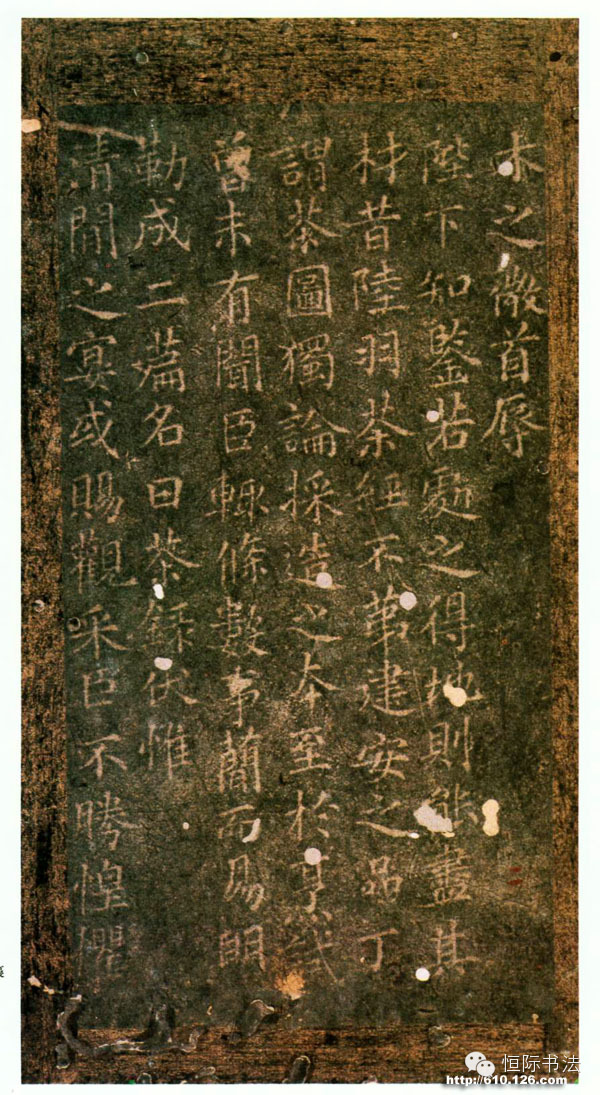 木之微首辱
陛下知鑒若處之得地則能盡其
材昔陸羽茶經不第建安之品丁
謂茶圖獨論採造之本至於烹試
曾未有聞臣輒條數事簡而易明
勒成二篇名曰茶録伏惟
清閒之宴或賜觀采臣不勝惶懼
恒际书法
http://610.126.com/